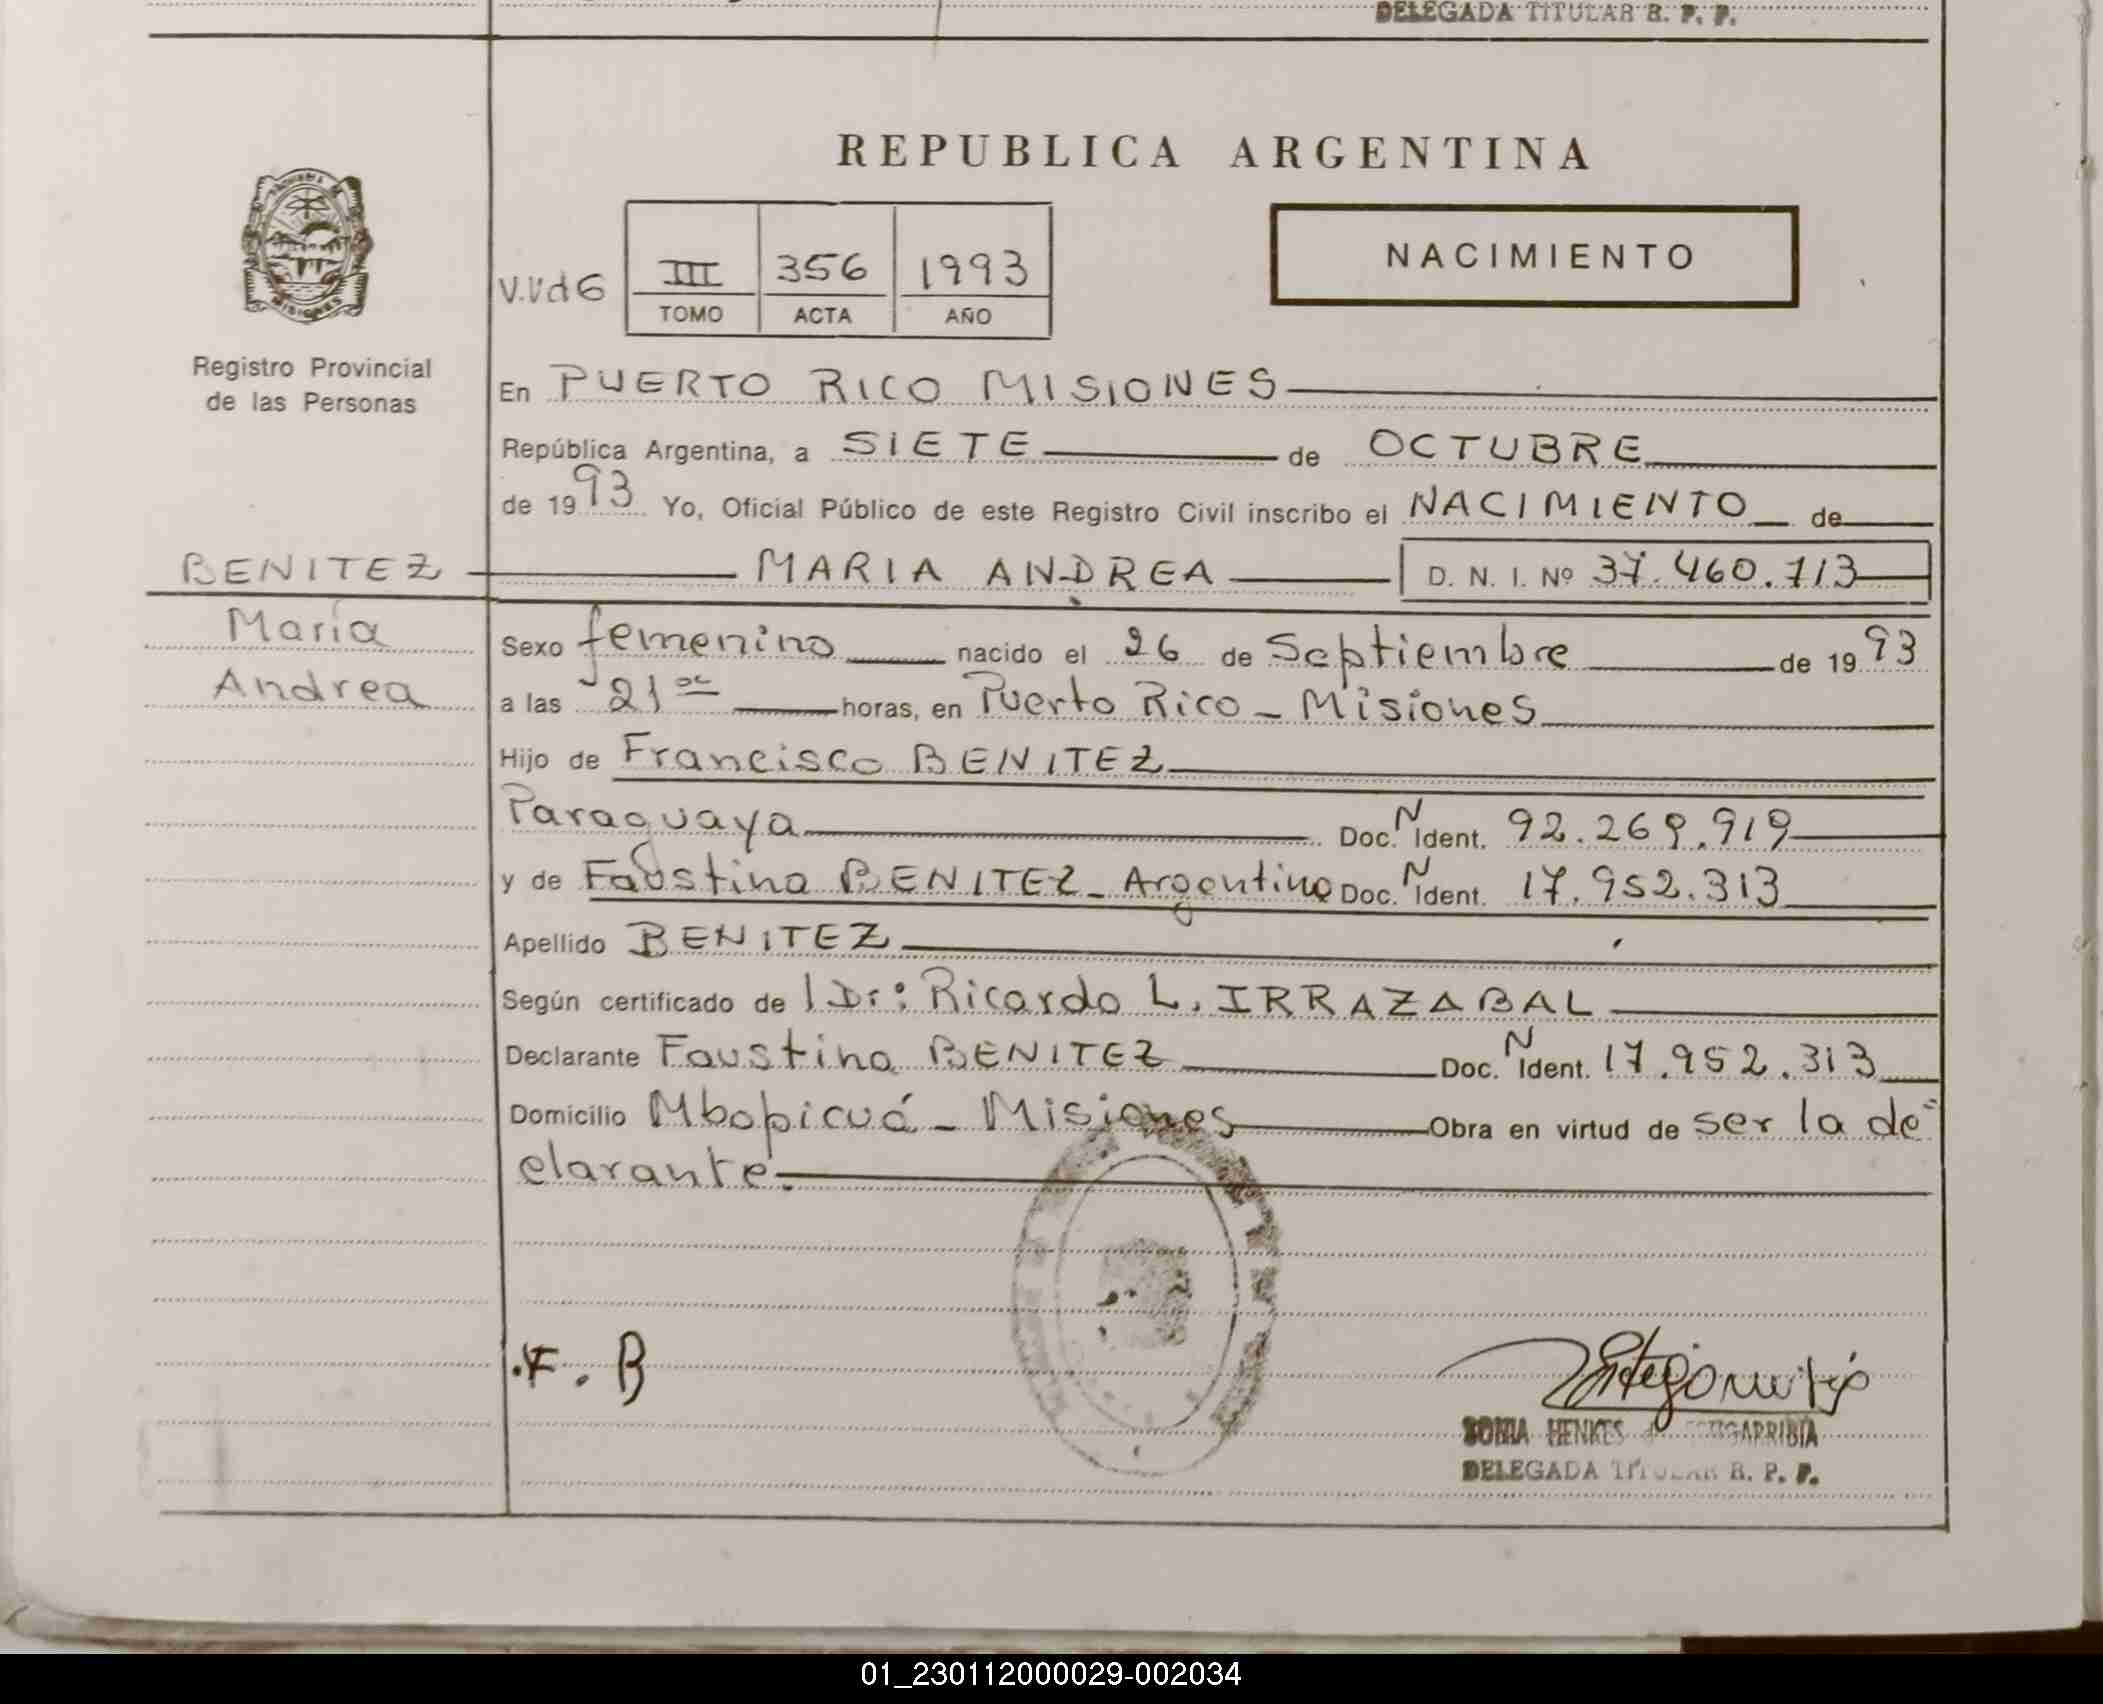 DELEGADA TITULAR R. P. P.
REPUBLICA ARGENTINA
PROVINCIA
MISIONES
Registro Provincial
de las Personas
III 356 1993
TOMO ACTA AÑO
NACIMIENTO
En PUERTO RICO MISIONES
República Argentina, a SIETE de OCTUBRE
de 1993 Yo, Oficial Público de este Registro Civil inscribo el NACIMIENTO de
BENITEZ MARIA ANDREA D. N. I. Nº 37.460.713
María
Andrea
Sexo femenino nacido el 26 de Septiembre de 1993
a las 21 oc horas, en Puerto Rico - Misiones
Hijo de Francisco BENITEZ
Paraguaya Doc. N Ident. 92.269.919
y de Faustina BENITEZ - Argentina Doc. N Ident. 17.952.313
Apellido BENITEZ
Según certificado de l Dr: Ricardo L. IRRAZABAL
Declarante Faustina BENITEZ Doc. N Ident. 17.952.313
Domicilio Mbopicuá - Misiones Obra en virtud de ser la de=
clarante.
F. B
SONIA HENKES de ESTIGARRIBIA
DELEGADA TITULAR R. P. P.
01_230112000029-002034